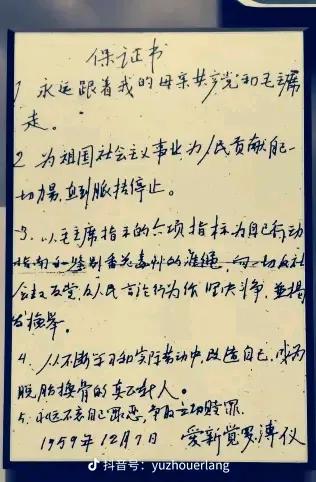 保证书
1 永远跟着我的母亲共产党和毛主席
走。
2 为祖国社会主义事业为人民贡献自己一
切力量,直到脉搏停止。
3. 以毛主席指示的六项指标为自己行动
指南和鉴别香花毒草的准绳,向一切反社
会主义反党,反人民言论行为作坚决斗争,並揭
发检举。
4. 从不断学习和实际劳动中,改造自己,成为
脱胎换骨的真正新人。
5. 永远不忘自己罪恶,争取立功赎罪。
1959年12月7日 爱新觉罗溥仪
抖音号:yuzhouerlang